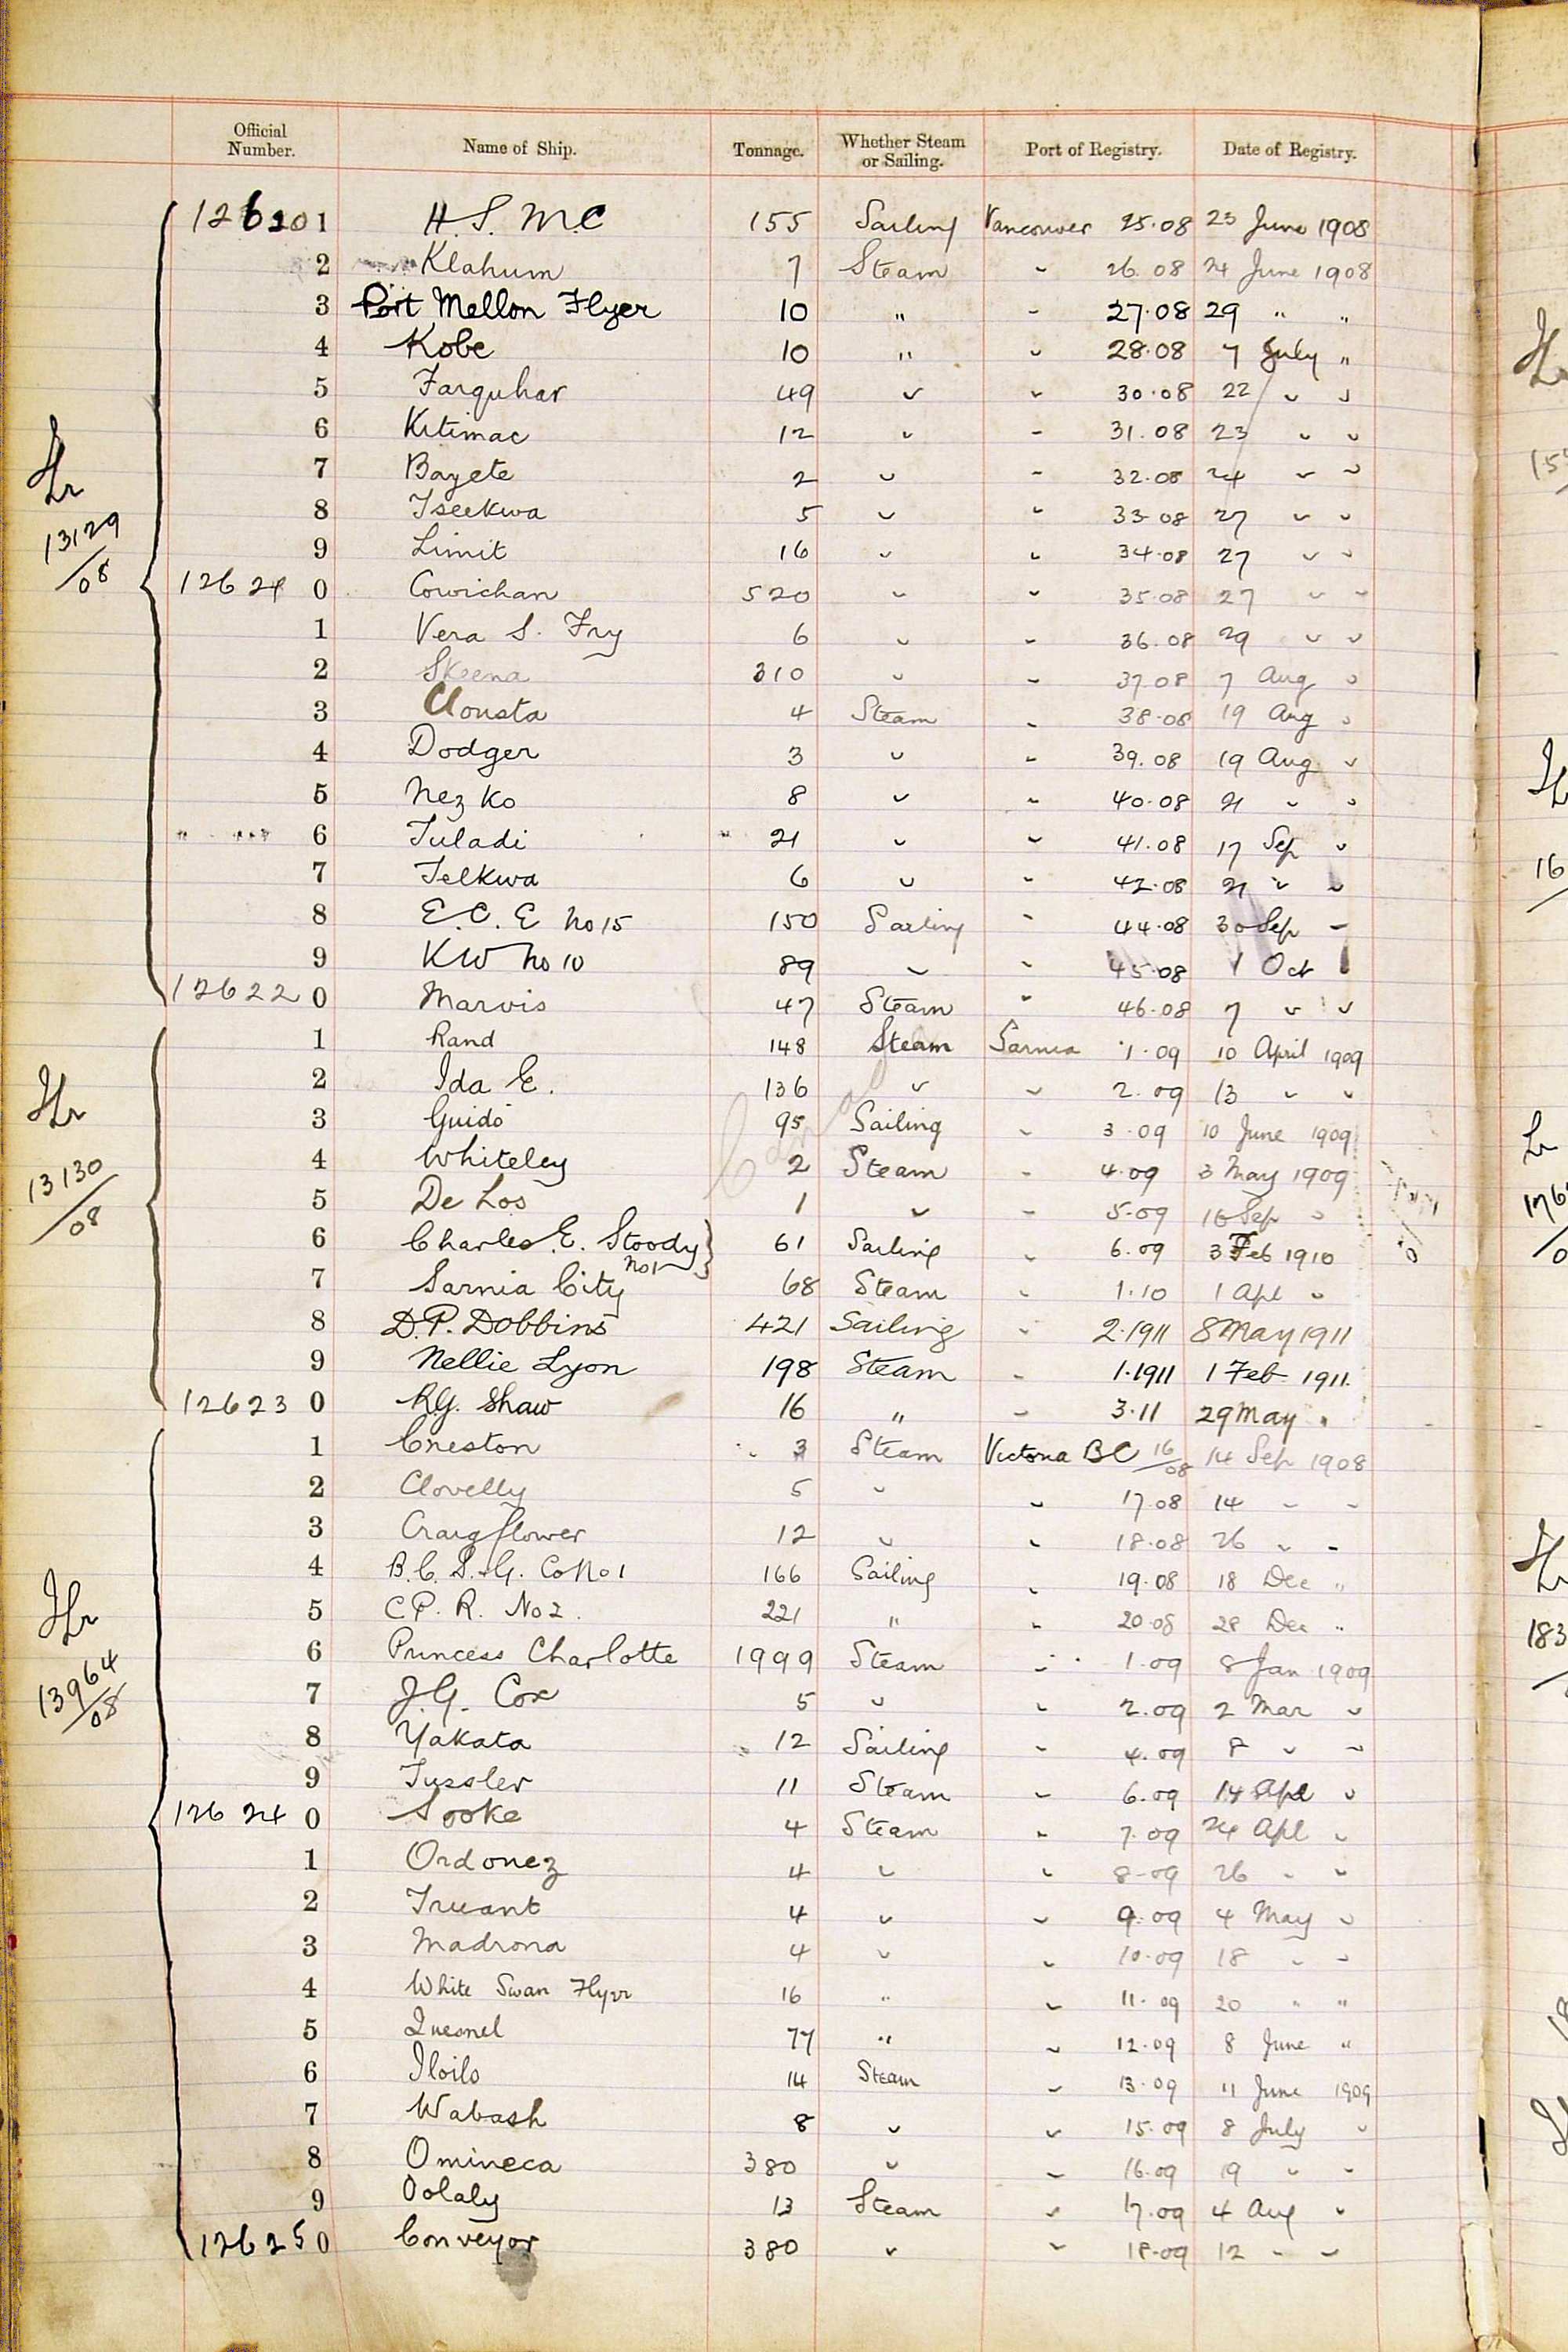 Official Number. Name of Ship. Tonnage. Whether Steam or Sailing. Port of Registry. Date of Registry.
126201 H. S. M.C 155 Sailing Vancouver 25.08 23 June 1908
2 Klahum 7 Steam " 26.08 24 June 1908
3 Port Mellon Flyer 10 " " 27.08 29 " "
4 Kobe 10 " " 28.08 7 July "
5 Farquhar 49 " " 30.08 22 " "
6 Kitimac 12 " " 31.08 23 " "
7 Bayete 2 " " 32.08 24 " "
8 Tseekwa 5 " " 33.08 27 " "
9 Limit 16 " " 34.08 27 " "
0 Cowichan 520 " " 35.08 27 " "
1 Vera S. Fry 6 " " 36.08 29 " "
2 Skeena 310 " " 37.08 7 Aug "
3 Clousta 4 Steam " 38.08 19 Aug "
4 Dodger 3 " " 39.08 19 Aug "
5 Nez Ko 8 " " 40.08 21 " "
6 Tuladi 21 " " 41.08 17 Sep "
7 Telkwa 6 " " 42.08 21 " "
8 E. C. E No 15 150 Sailing " 44.08 30 Sep "
9 KW No 10 89 " " 45.08 1 Oct
126220 Marvis 47 Steam " 46.08 7 " "
1 Rand 148 Steam Sarnia 1.09 10 April 1909
2 Ida E. 136 " " 2.09 13 " "
3 Guido 95 Sailing " 3.09 10 June 1909
4 Whiteley 2 Steam " 4.09 3 May 1909
5 De Los 1 " " 5.09 16 Sep "
6 Charles E. Stoody No 1 61 Sailing " 6.09 3 Feb 1910
7 Sarnia City 68 Steam " 1.10 1 Apl "
8 D.P. Dobbins 421 Sailing " 2.1911 8 May 1911
9 Nellie Lyon 198 Steam " 1.1911 1 Feb 1911.
126230 R.G. Shaw 16 " " 3.11 29 May "
1 Creston 3 Steam Victoria BC 16/08 14 Sep 1908
2 Clovelly 5 " " 17.08 14 " "
3 Craigflower 12 " " 18.08 26 " "
4 B.C. S.G. Co No 1 166 Sailing " 19.08 18 Dec "
5 C.P. R. No 2. 221 " " 20.08 28 Dec "
6 Princess Charlotte 1999 Steam " 1.09 8 Jan 1909
7 J.G. Cox 5 " " 2.09 2 Mar "
8 Yakata 12 Sailing " 4.09 8 " "
9 Tussler 11 Steam " 6.09 14 Apl "
126240 Sooke 4 Steam " 7.09 24 Apl "
1 Ordonez 4 " " 8.09 26 " "
2 Truant 4 " " 9.09 4 May "
3 Madrona 4 " " 10.09 18 " "
4 White Swan Flyer 16 " " 11.09 20 " "
5 Quesnel 77 " " 12.09 8 June "
6 Iloilo 14 Steam " 13.09 11 June 1909
7 Wabash 8 " " 15.09 8 July "
8 Omineca 380 " " 16.09 19 " "
9 Oolaly 13 Steam " 17.09 4 Aug "
126250 Conveyor 380 " " 18.09 12 " "
13129/08
13130/08
13964/08